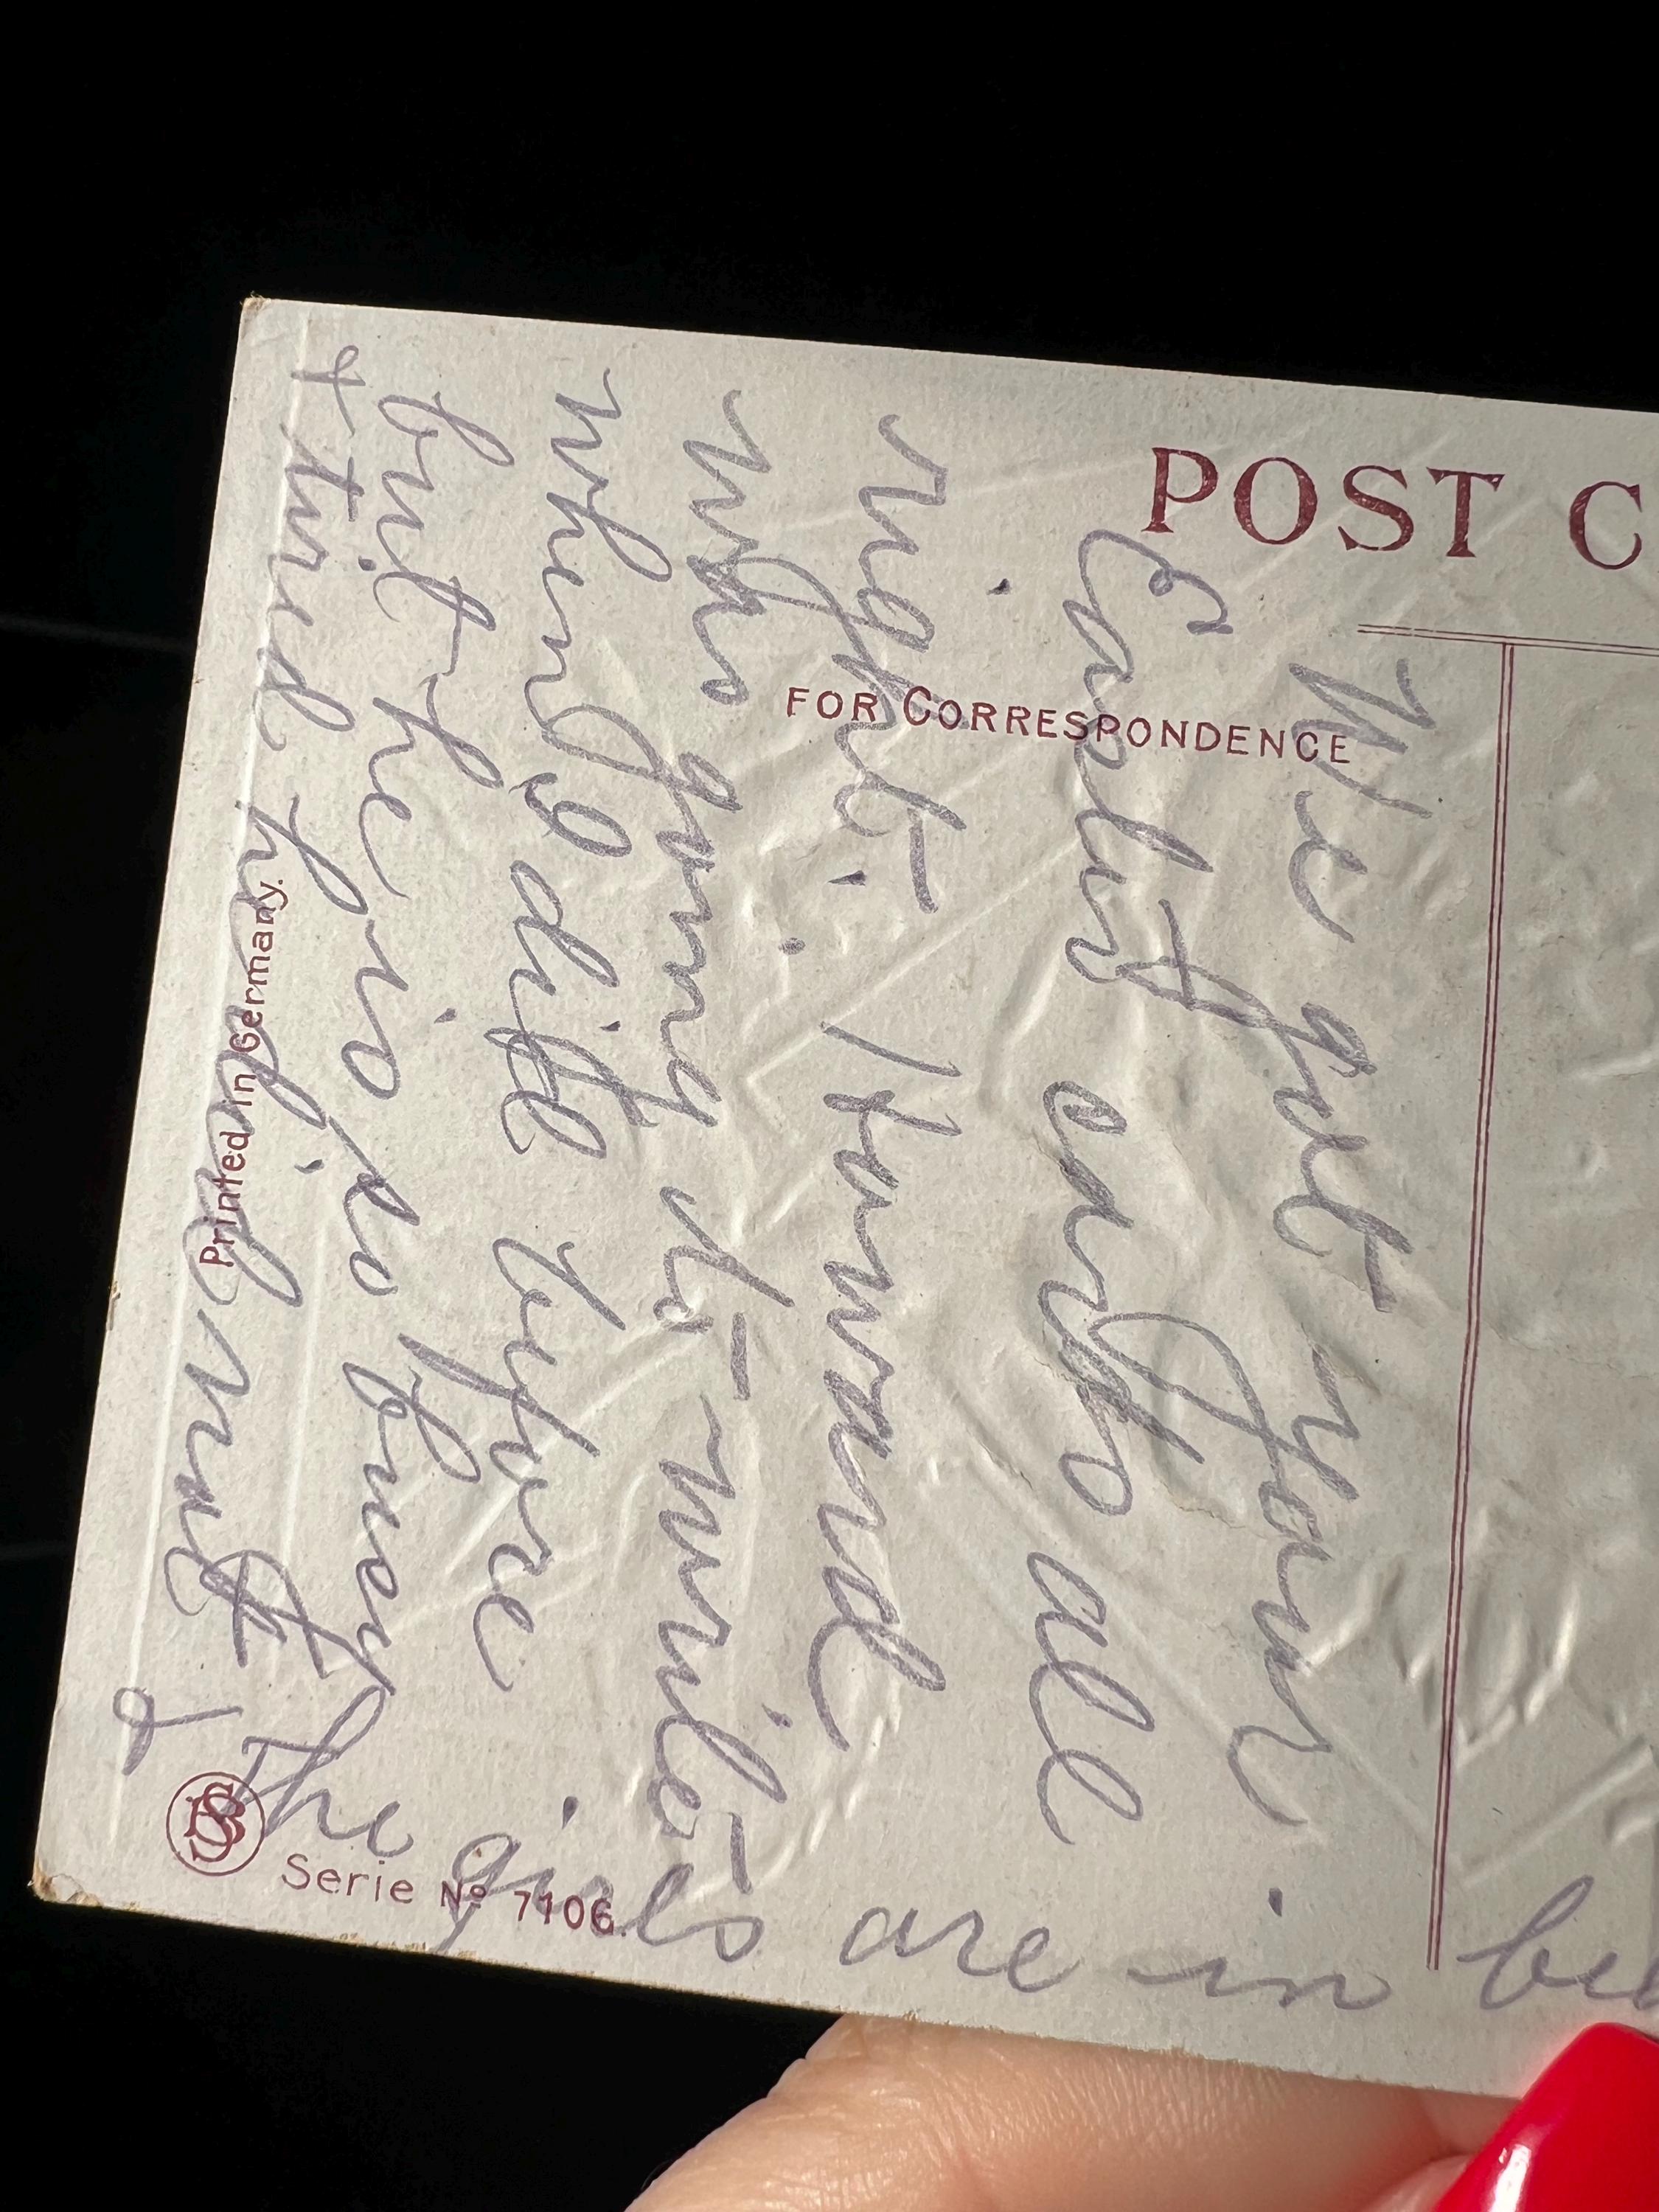 POST C
FOR CORRESPONDENCE
We got your
Easter cards all
right. Howard
was going to write
when
a little before
but he is so busy
+ tired he did not
&
The girls are in be
Printed in Germany.
Serie No 7106.